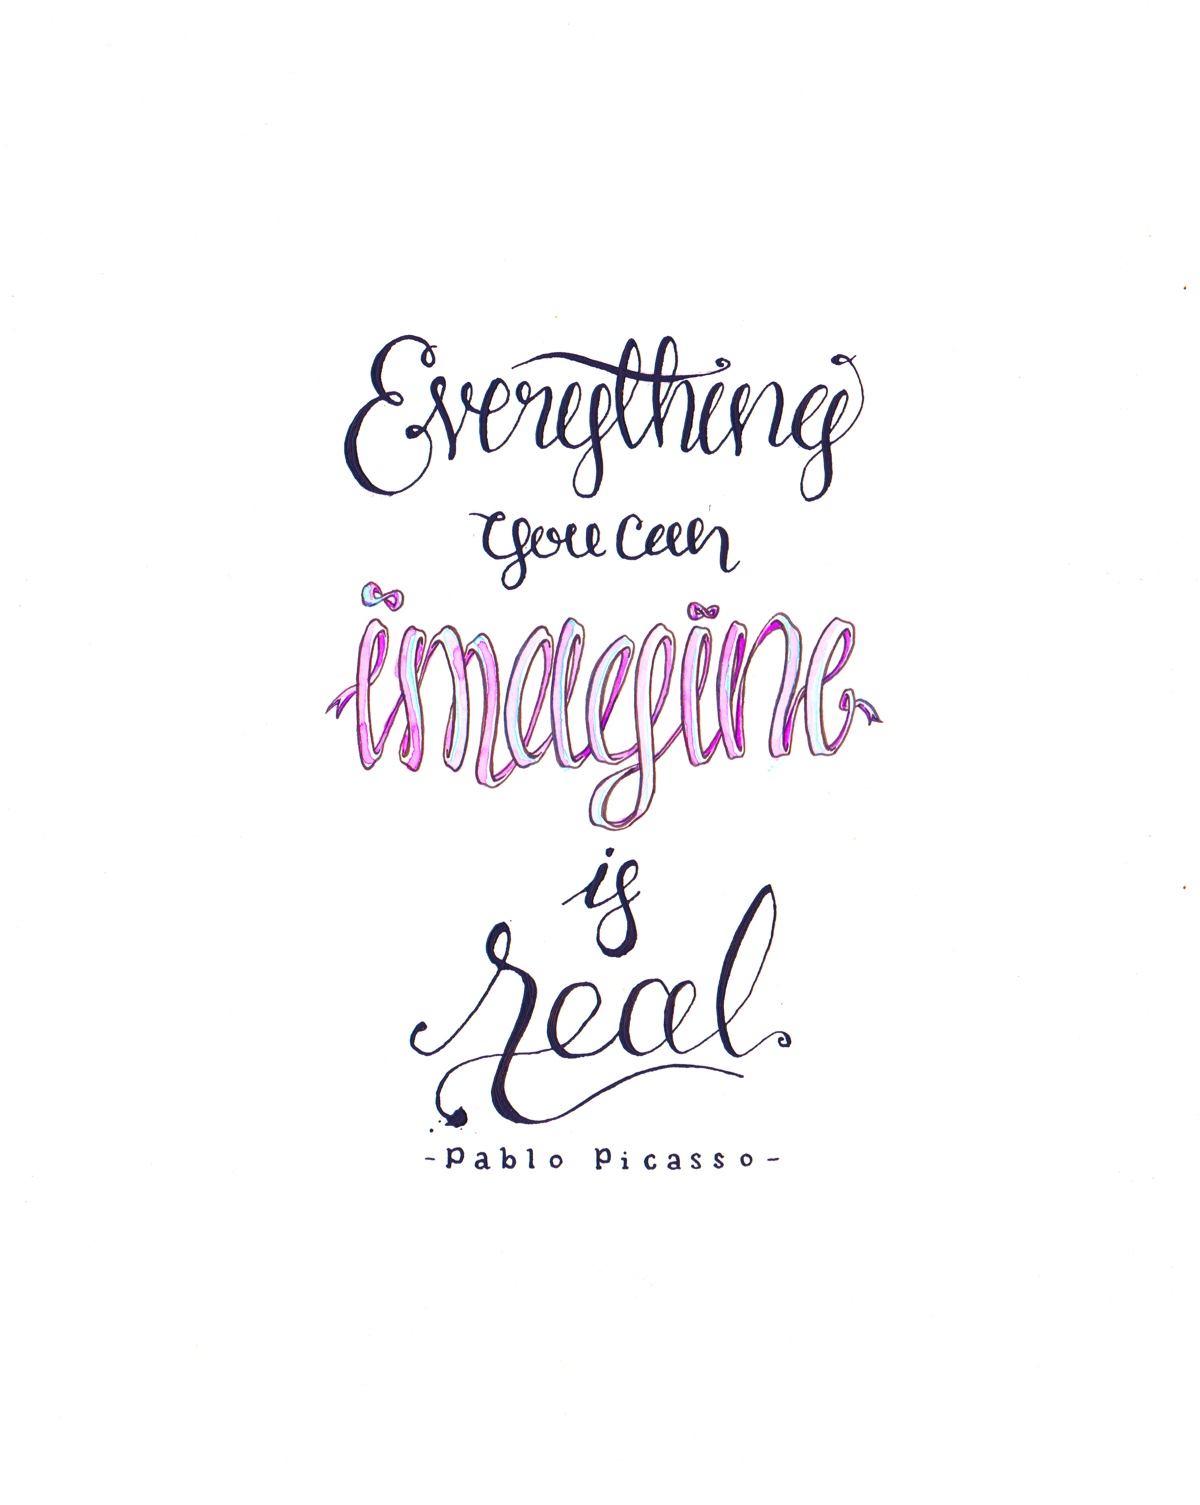 Everything
you can
imagine
is
real
-Pablo Picasso-